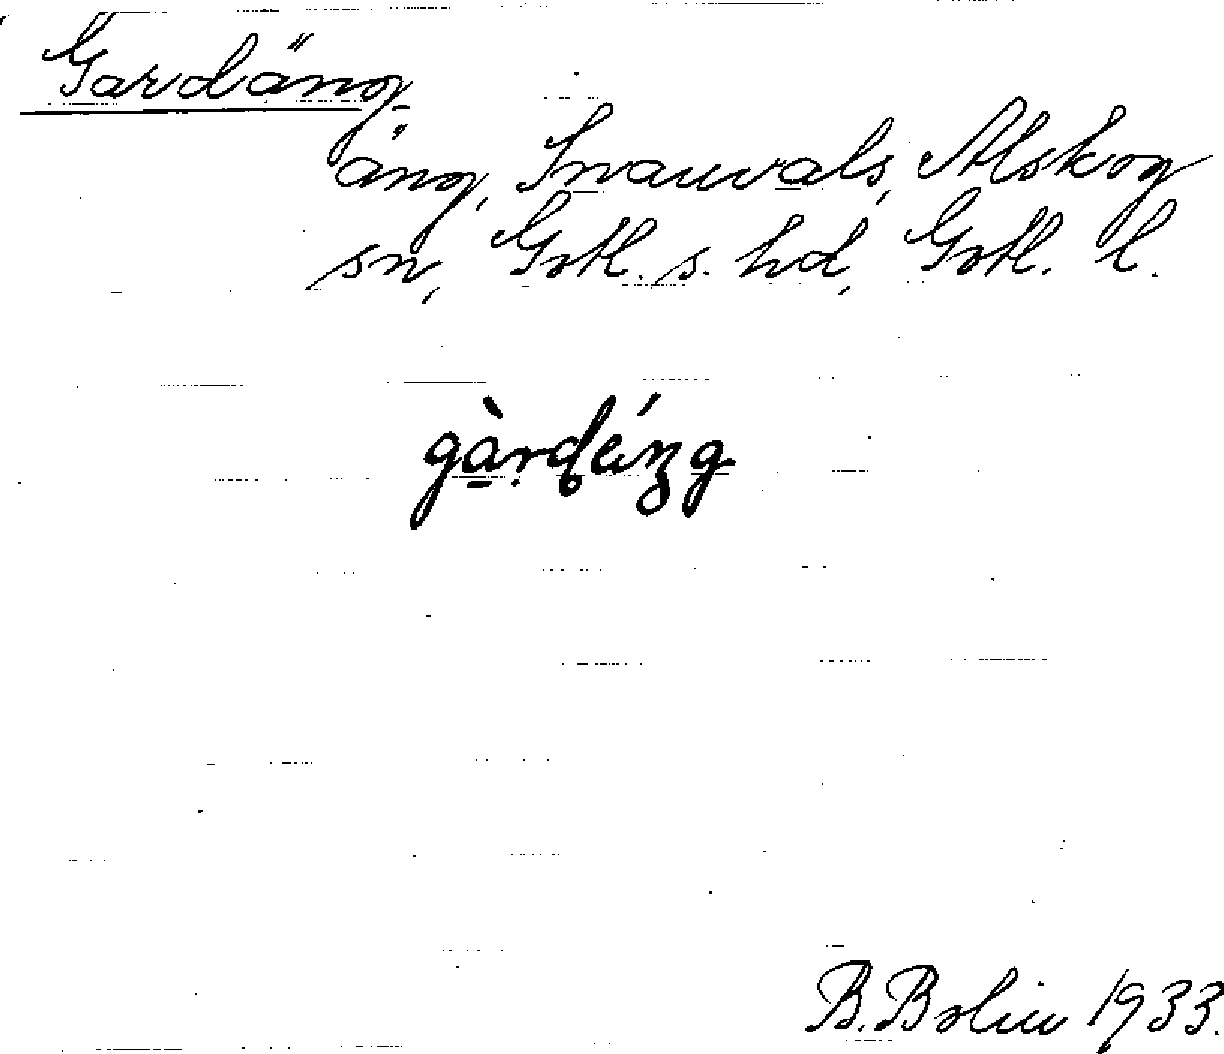 Gardäng
äng, Snauvals, Alskog
sn, Gotl. s. hd, Gotl. l.
gàrdéng
B. Bolin 1933.